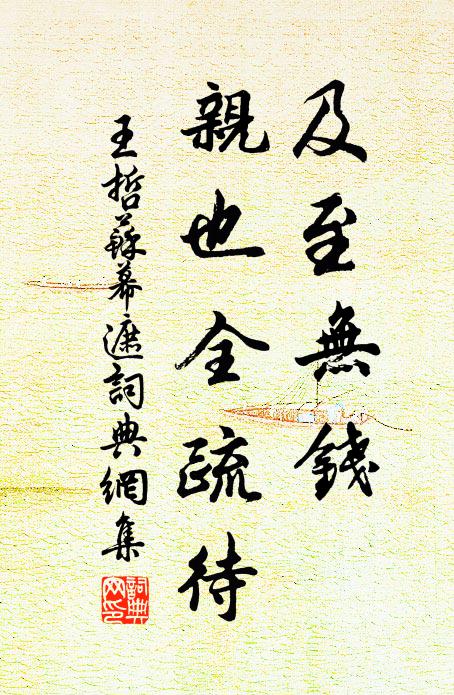 及至無錢
親也全疏待
王哲蘇幕遮詞典網集
詞典
网印